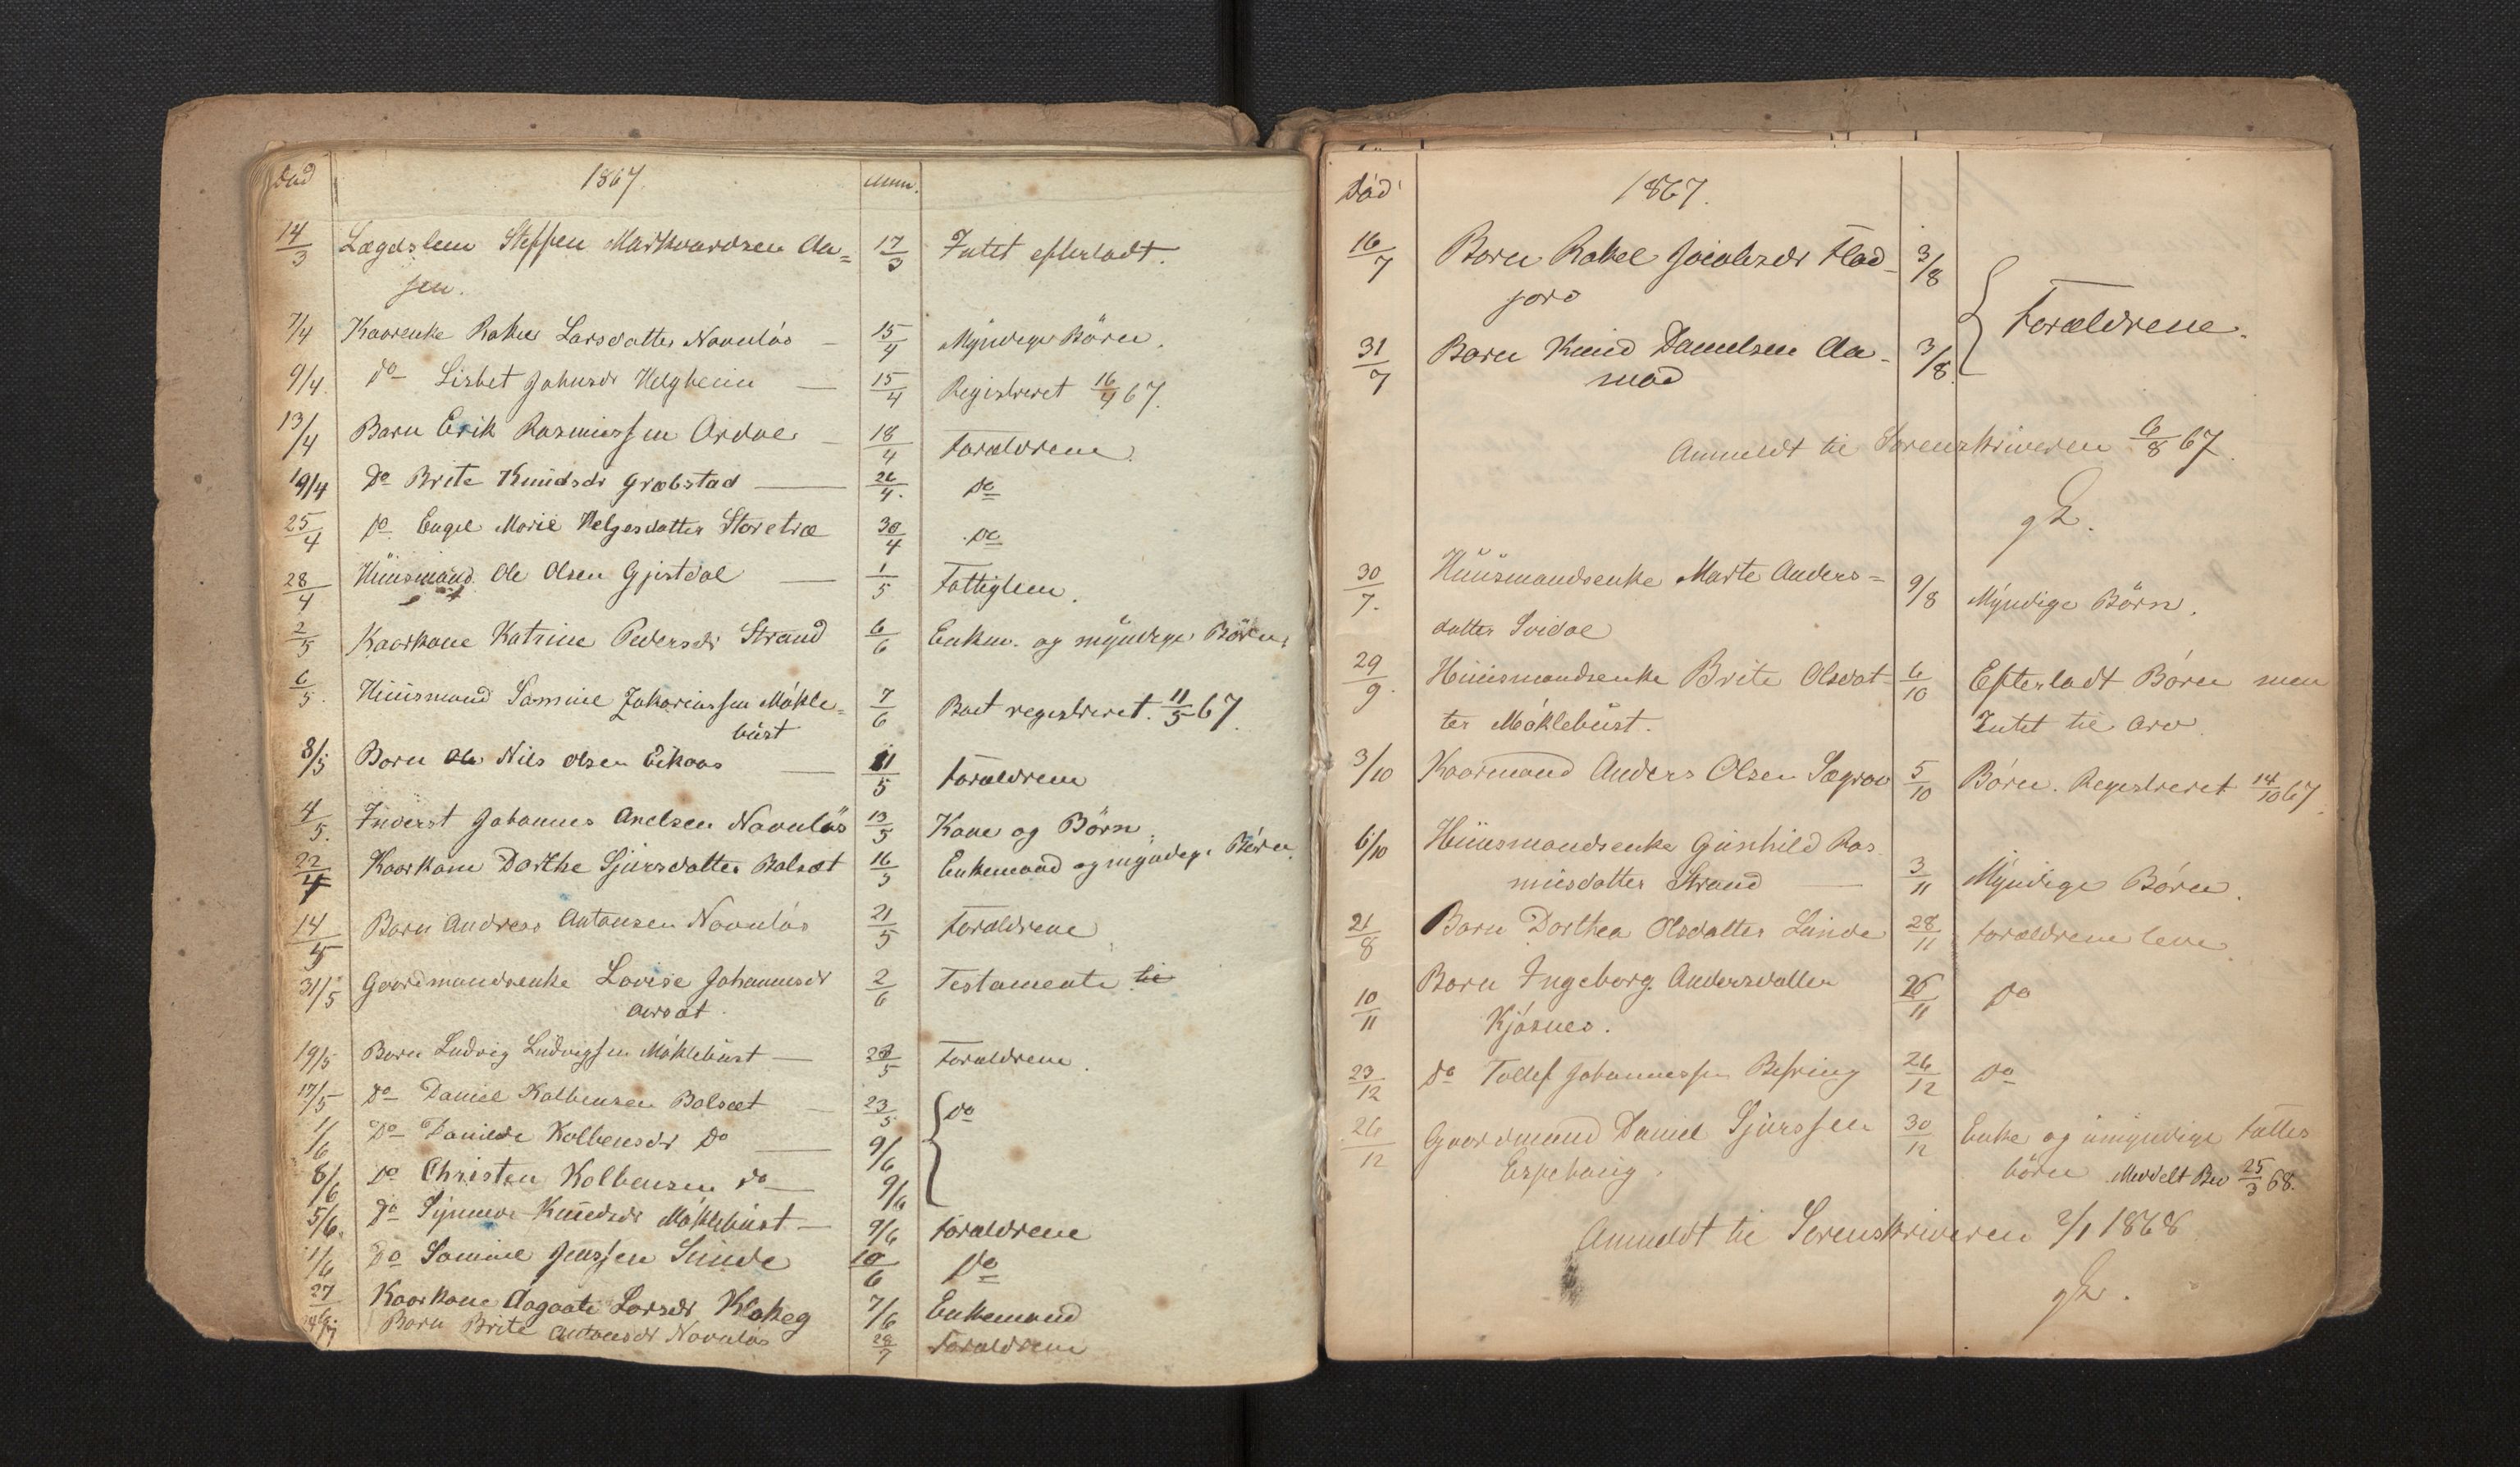 Død 1867. Anm.
14/3 Lægdslem Steffen Markvardsen Aa= 17/3 Intet efterladt.
sen.
7/4 Kaarenke Rakel Larsdatter Navnløs — 15/4 Myndige Börn.
9/4. do Lisbet Johnsdr Helgheim — 15/4 Registreret 16/4 67.
13/4 Barn Erik Rasmussen Ardal — 18/4 Forældrene.
19/4 Do Brite Knüdsdr Græbstad — 26/4. Do
25/4 Do Engel Marie Helgesdatter Storetræ 30/4 Do
28/4 Hüüsmand Ole Olsen Gjestdal — 1/5 Fattiglem.
2/5 Kaarkone Katrine Pedersdr Strand 6/6 Enkem. og myndige Börn.
6/5. Hüüsmand Samüel Zakariassen Møkle= 7/6 Boet registreret. 11/5 67.
büst
8/5 Barn Ole Nils Olsen Eikaas — 11/5 Forældrene
4/5. Inderst Johannes Axelsen Navnløs 13/5 Kone og Börn.
22/4 Kaarkone Dorthe Sjürsdatter Bolsæt 16/5 Enkemand og myndige Börn.
14/5 Barn Andreas Antonsen Navnløs 21/5 Forældrene
31/5 Gaardmandsenke Lovise Johannesdr 2/6 Testamente til
Aarsæt.
19/5 Barn Ludvig Lüdvigsen Møklebüst — 23/5 Forældrene.
17/5 Do Daniel Kolbensen Bolsæt — 23/5 Do
1/6 Do Danilde Kolbensdr Do — 9/6
8/6 Do Christen Kolbensen do — 9/6
5/6. Do Synneve Knüdsdr Møklebüst — 9/6 Forældrene
1/6 Do Samüel Jenssen Sünde 10/6 Do
27/6. Kaarkone Aagaate Larsdr Klakeg 7/6 Enkemand
Barn Brite Antonsdr Navnløs 28/7 Forældrene
Død 1867.
16/7 Barn Rakel Jacobsdr Flad- 3/8
jord
Forældrene.
31/7 Barn Knüd Danielsen Aa- 3/8.
mod
Anmeldt til Sorenskriveren 6/8 67.
30/7. Hüüsmandsenke Marte Anders= 9/8 Myndige Börn.
datter Svidal
29/9 Hüüsmandsenke Brite Olsdat- 6/10 Efterladt Börn men
ter Møklebüst. Intet til Arv.
3/10 Kaarmand Anders Olsen Sægrov 5/10 Börn. Registreret 14/10 67.
6/10 Hüüsmandsenke Günhild Ras
müsdatter Strand — 3/11 Myndige Börn.
21/8 Barn Dorthea Olsdatter Sünde 28/11 Forældrene leve.
10/11 Barn Ingeborg Andersdatter 26/11 Do
Kjøsnes.
23/12 Do Tollef Johannessen Befring 26/12 Do
26/12 Gaardmand Daniel Sjurssen 30/12 Enke og ümyndige Fælles
Espehaüg. börn. Meddelt Bev 25/3 68.
Anmeldt til Sorenskriveren 2/1 1868